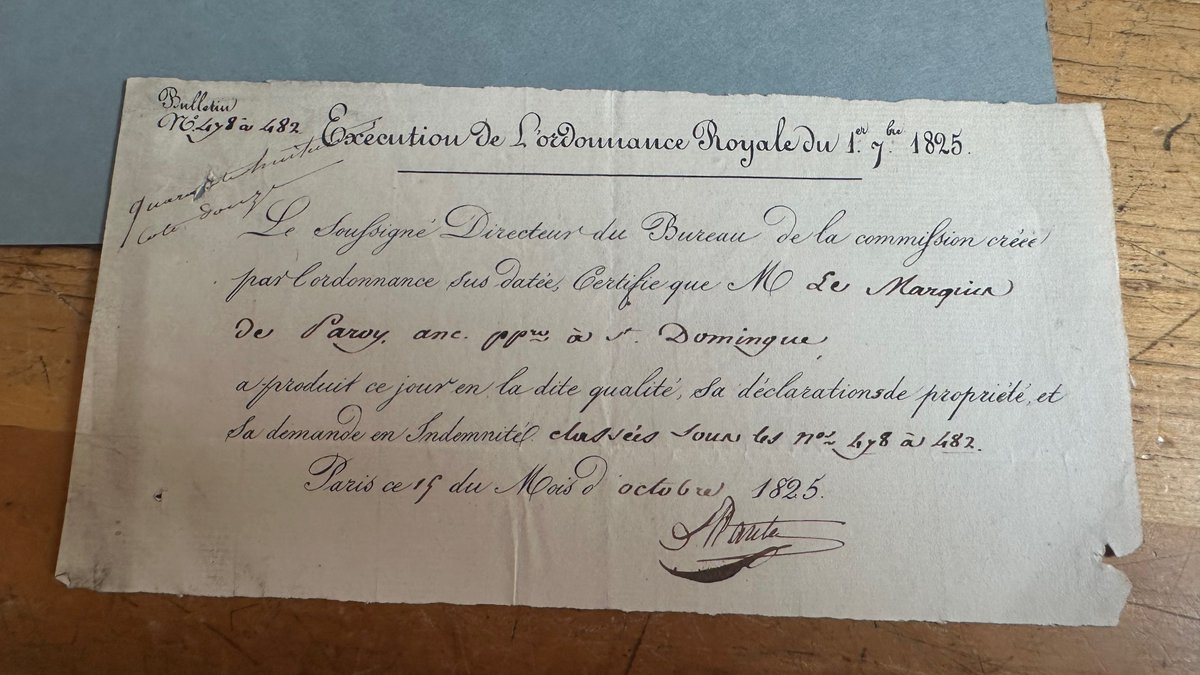 Bulletin
Nº 478 à 482
Exécution de L'ordonnance Royale du 1.er 7.bre 1825.
quarante huitième
cote douze
Le Soussigné Directeur du Bureau de la commission créée
par l'ordonnance sus datée, Certifie que M Le Marquis
de Paroy, anc. ppre à St. Domingue,
a produit ce jour en la dite qualité, sa déclarations de propriété, et
sa demande en Indemnité classées sous les nos 478 à 482.
Paris ce 15 du Mois d'octobre 1825.